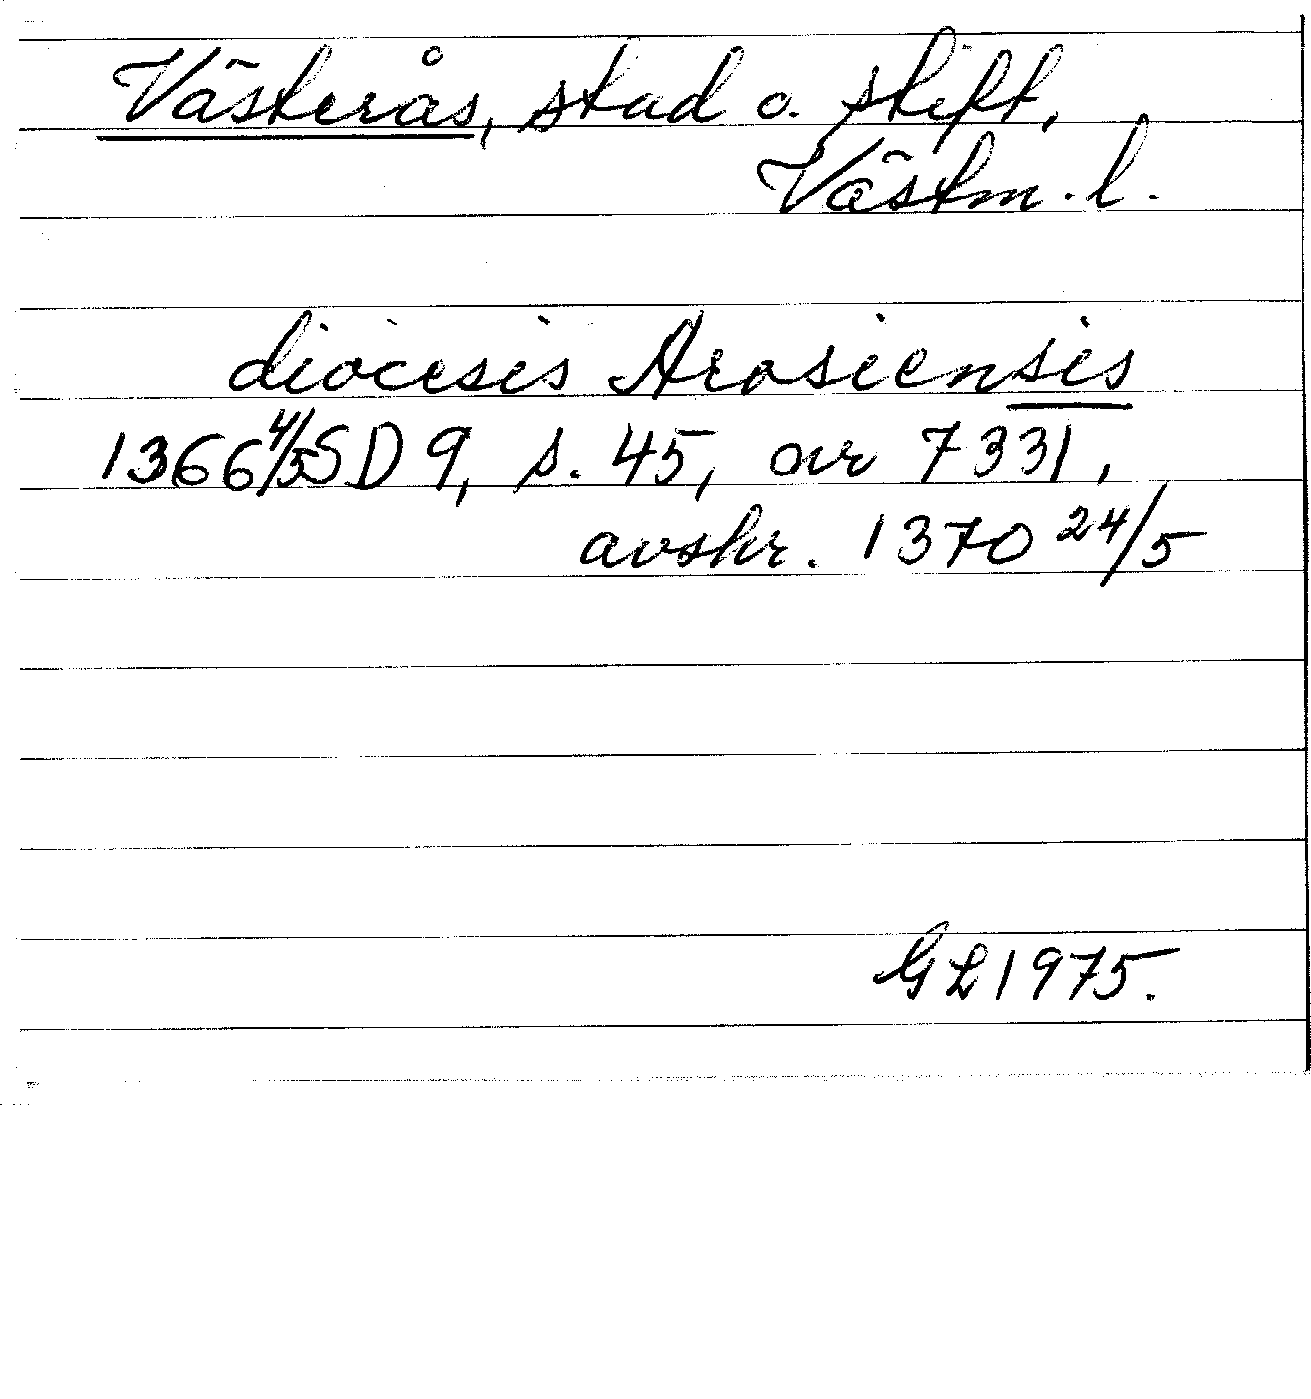 Västerås, stad o. stift,
Västm. l.
diocesis Arosiensis
1366 4/5 SD 9, s. 45, nr 7331,
avskr. 1370 24/5
GL 1975.